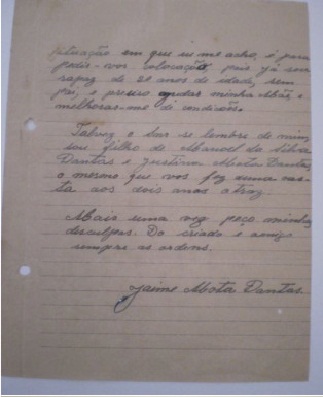 situação em que eu me acho, é para
pedir-vos colocação, pois já sou
rapaz de 20 anos de idade, sem
pai, e preciso ajudar minha Mãe, e
melhorar-me de condições.
Talvez o Snr se lembre de mim,
sou filho de Manoel da Silva
Dantas e Justina Mota Dantas,
o mesmo que vos fez uma
aos dois anos atraz.
Mais uma vez peço minhas
desculpas. Do criado e amigo
sempre as ordens.
Jaime Mota Dantas.